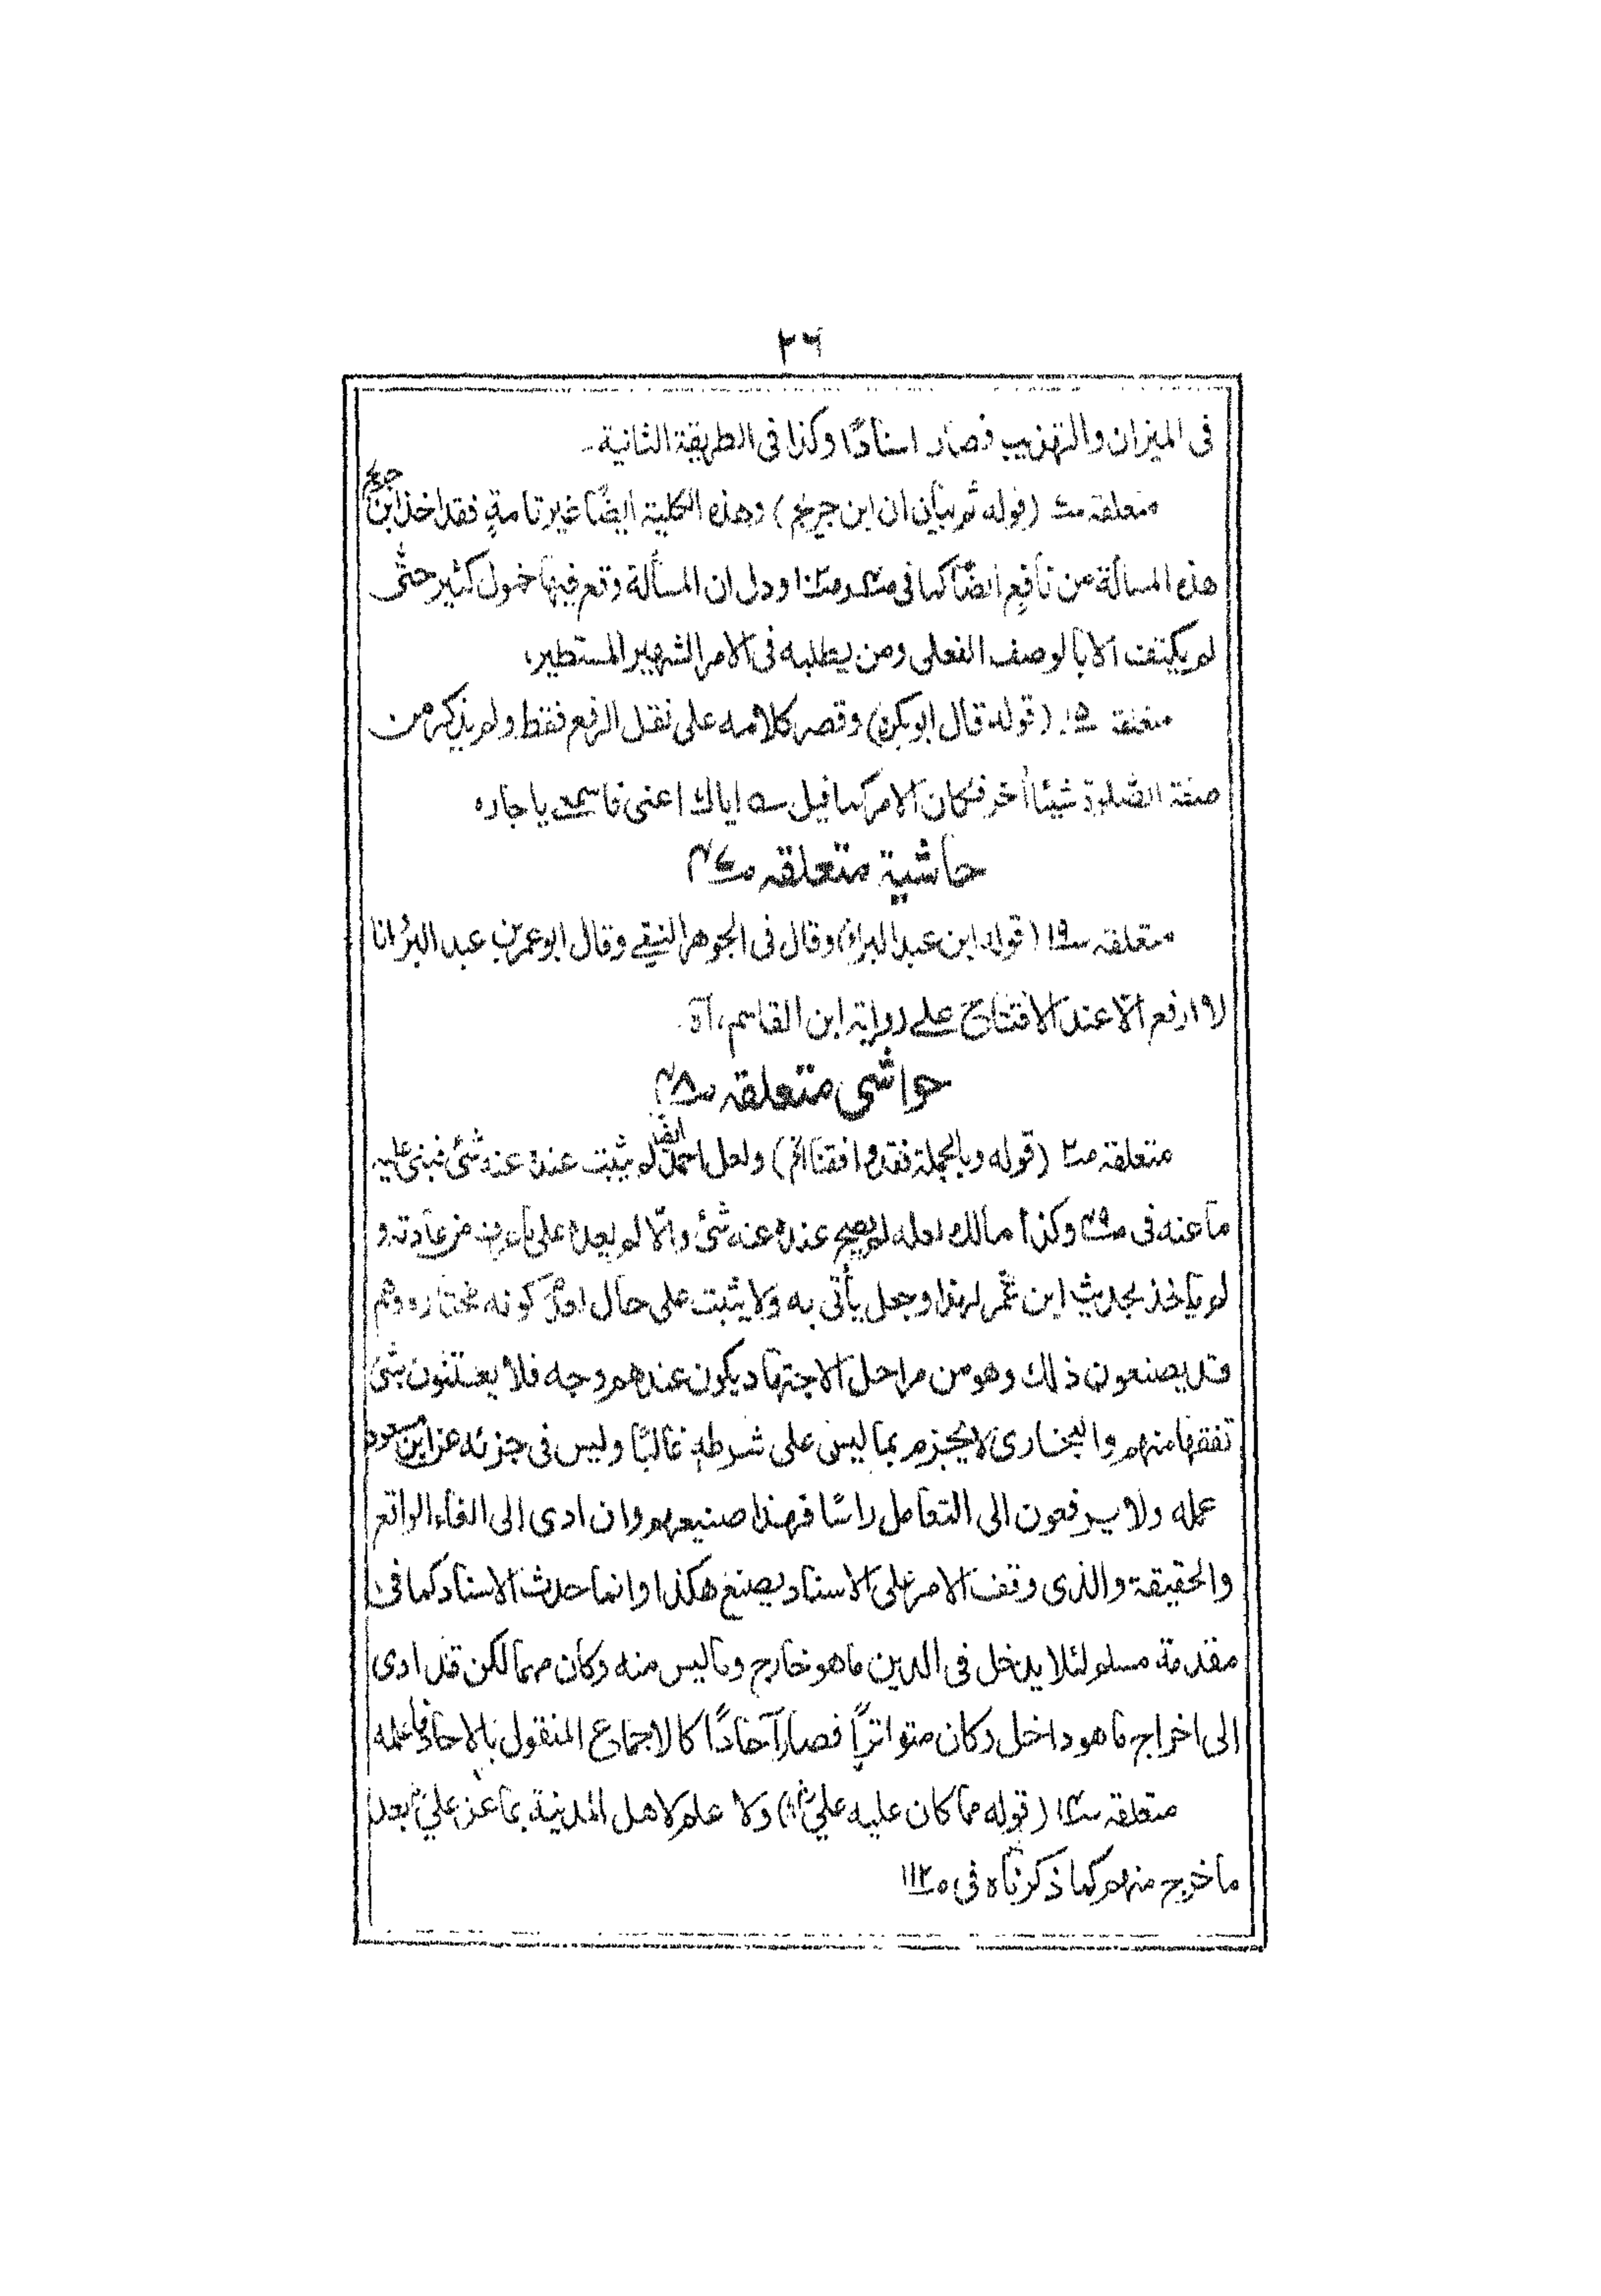 ٢٦
فی المیزان والتهذیب فصار اسنادًا وکذا فی الطریقة الثانیة۔
متعلقه (قوله ثم بیان ان ابن جریج) وهذه الکلیة ایضًا غیر تامةٍ فقد اخذ ابن جریج
هذه المسألة من نافعٍ ایضًا کما فی ودل ان المسألة وقع فیها خمول کثیر حتّٰی
لم یکتف الا بالوصف الفعلی ومن یطلبه فی الامر الشهیر المستطیر،
متعلقه ١٥ (قوله قال ابوبکر) وقصر کلامه علی نقل الرفع فقط ولم یذکر من
صفة الصلوٰة شیئا أخر فکان الامر کما قیل ے ایاك اعنی فاسمعی یا جاره
حاشیة متعلقه ص٤٧
متعلقه س١٩ (قوله ابن عبد البر) وقال فی الجوهر النقی وقال ابوعمر بن عبد البر انا
لا ارفع الا عند الافتتاح علے روایة ابن القاسم، اٰه۔
حواشی متعلقه ص٤٨
متعلقه س٢ (قوله وبالجملة فقد وافقنا الخ) ولعل احمد ایضًا لم یثبت عنده عنه شئ فبنی علیه
ما عنه فی وکذا مالك لعله لم یصح عنده عنه شئ والّا لم یعده علی من عادته و
لم یاخذ بحدیث ابن عمر لهذا وجعل یأتی به ولا یثبت علی حال کونه مختاره وهم
قد یصنعون ذلك وهو من مراحل الاجتهاد یکون عندهم وجه فلا یعتنون بشئ
تفقها منهم والبخاری لا یجزم بما لیس علی شرطهٖ غالبًا ولیس فی جزئه عن ابن مسعود
عمله ولا یرفعون الی التعامل راسًا فهذا صنیعهم وان ادی الی الغاء الواقع
والحقیقة والذی وقف الامر علی الاسناد یصنع هکذا وانما حدث الاسناد کما فی
مقدمة مسلم لئلا یدخل فی الدین ما هو خارج وما لیس منه وکان مهما لکن قد ادی
الی اخراج ما هو داخل وکان متواترًا فصار آحادًا کالاجماع المنقول بالاحاد فاعلمه
متعلقه (قوله مما کان علیه علیؓ) ولا علم لاهل المدینة بما عن علیؓ بعد
ما خرج منهم کما ذکرناه فی ص١١٢